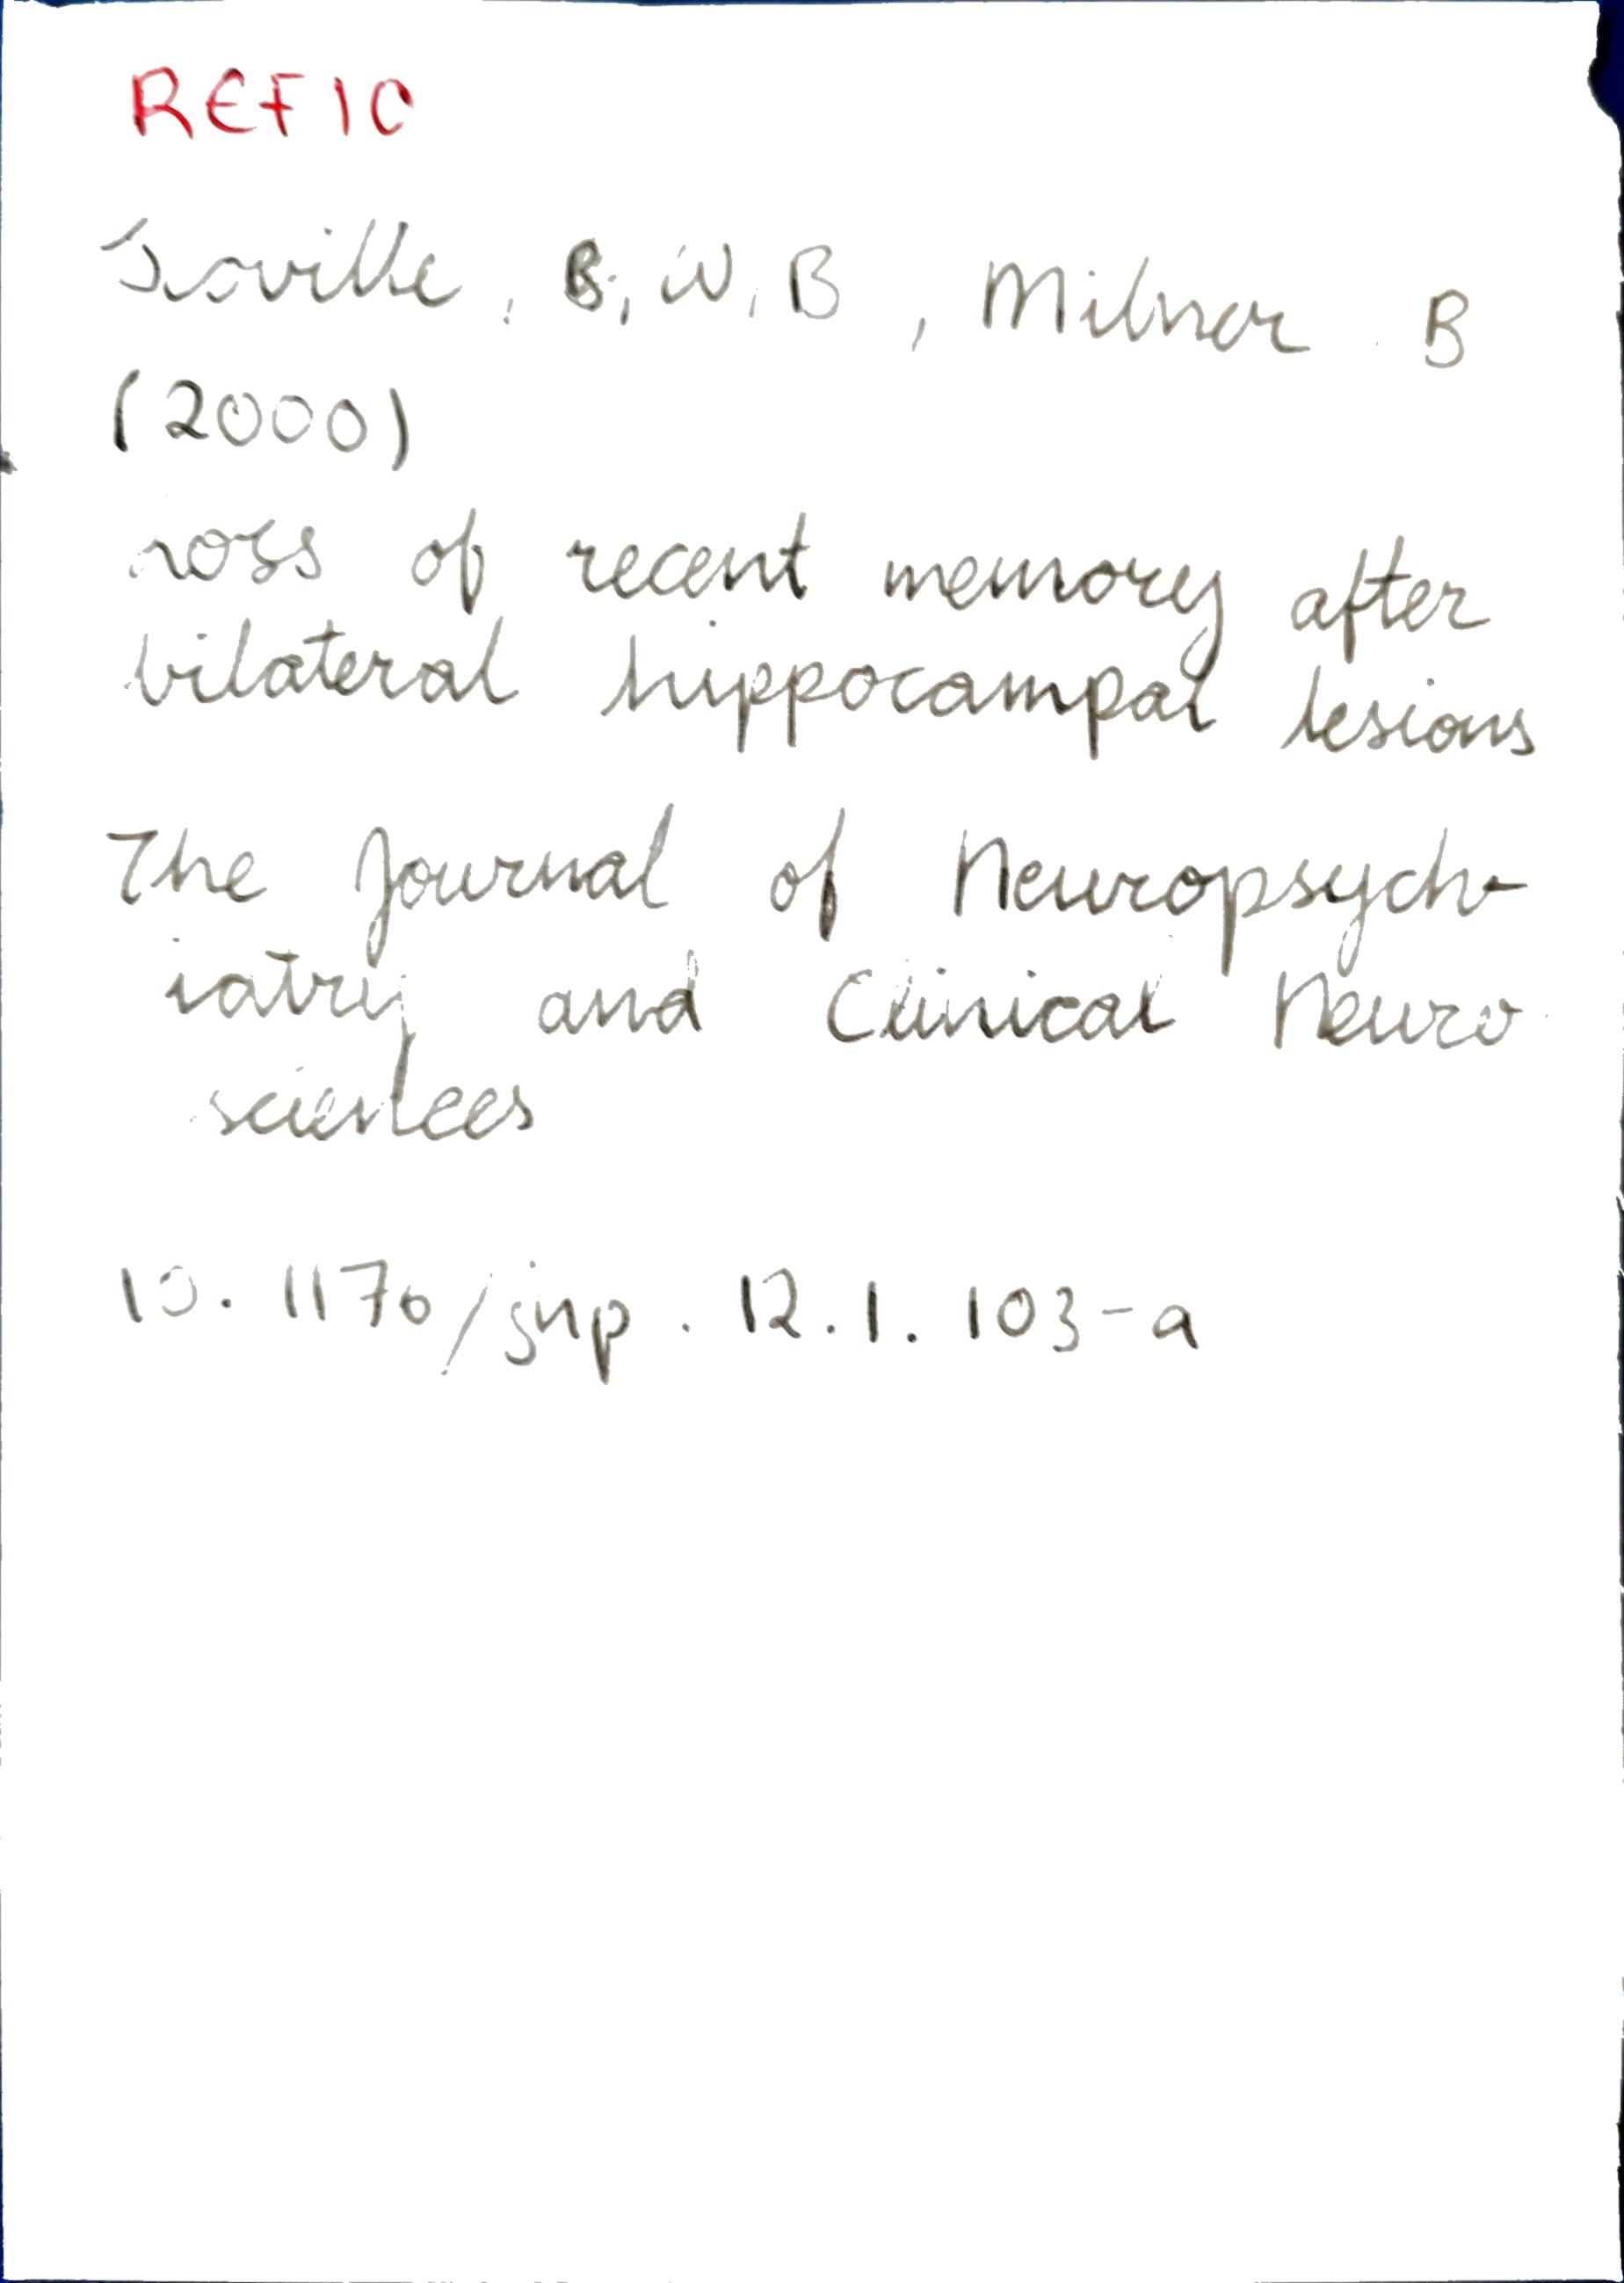 REF10
Scoville, B, W, B, Milner B
(2000)
Loss of recent memory after
bilateral hippocampal lesions
The Journal of Neuropsych-
iatry and Clinical Neuro
sciences
10.1176/jnp.12.1.103-a